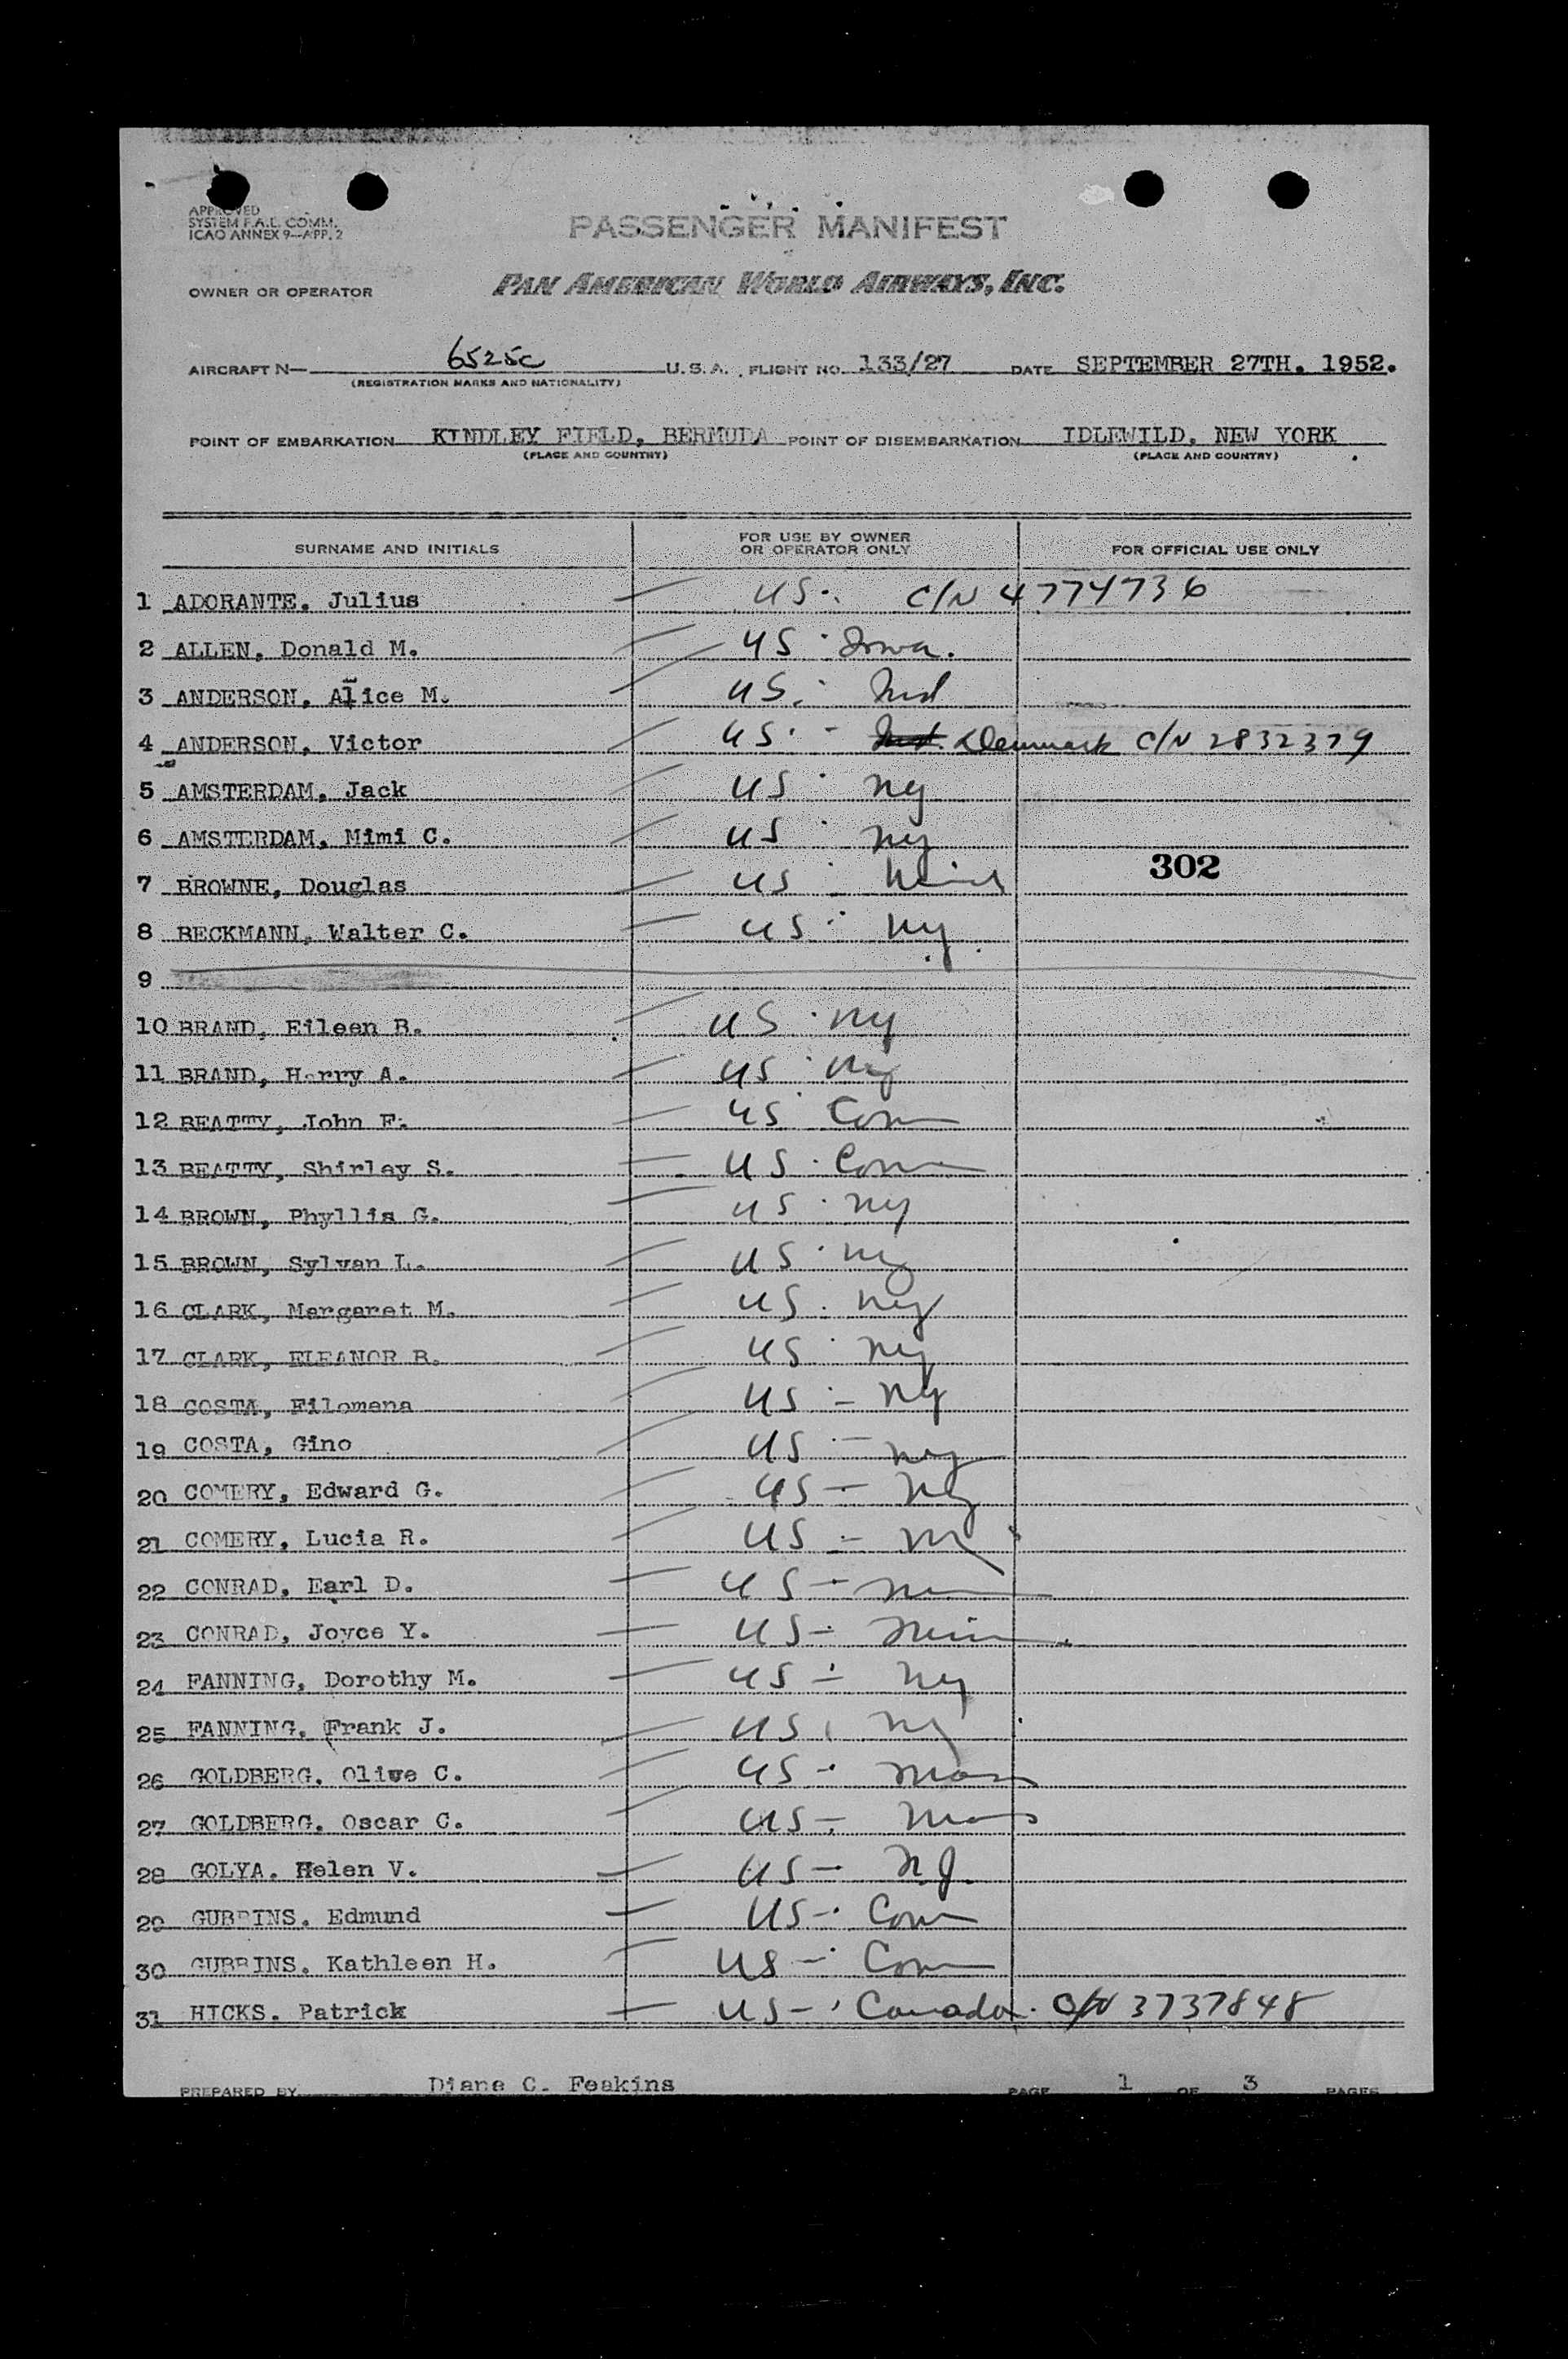 APPROVED
SYSTEM F.A.L. COMM.
ICAO ANNEX 9—APP. 2
PASSENGER MANIFEST
OWNER OR OPERATOR PAN AMERICAN WORLD AIRWAYS, INC.
AIRCRAFT N— 6525C U.S.A. FLIGHT NO. 133/27 DATE SEPTEMBER 27TH. 1952.
(REGISTRATION MARKS AND NATIONALITY)
POINT OF EMBARKATION KINDLEY FIELD, BERMUDA POINT OF DISEMBARKATION IDLEWILD, NEW YORK
(PLACE AND COUNTRY) (PLACE AND COUNTRY)
SURNAME AND INITIALS FOR USE BY OWNER OR OPERATOR ONLY FOR OFFICIAL USE ONLY
1 ADORANTE, Julius US. C/N 4774736
2 ALLEN, Donald M. US Iowa.
3 ANDERSON, Alice M. US.
4 ANDERSON, Victor US. - Denmark C/N 2832379
5 AMSTERDAM, Jack US ny
6 AMSTERDAM, Mimi C. US ny
302
7 BROWNE, Douglas US
8 BECKMANN, Walter C. US ny.
9
10 BRAND, Eileen B. US ny
11 BRAND, Harry A. US ny
12 BEATTY, John F. US Conn
13 BEATTY, Shirley S. US Conn
14 BROWN, Phyllis G. US ny
15 BROWN, Sylvan L. US ny
16 CLARK, Margaret M. US. ny
17 CLARK, ELEANOR B. US ny
18 COSTA, Filomena US - ny
19 COSTA, Gino US - ny
20 COMERY, Edward G. US - ny
21 COMERY, Lucia R. US - ny
22 CONRAD, Earl D. US -
23 CONRAD, Joyce Y. US -
24 FANNING, Dorothy M. US - ny
25 FANNING, Frank J. US ny
26 GOLDBERG, Olive C. US - Mass
27 GOLDBERG, Oscar C. US - Mass
28 GOLYA, Helen V. US - NJ.
29 GUBBINS, Edmund US - Conn
30 GUBBINS, Kathleen H. US - Conn
31 HICKS, Patrick US - Canada. C/N 3737848
PREPARED BY Diane C. Feakins PAGE 1 OF 3 PAGES